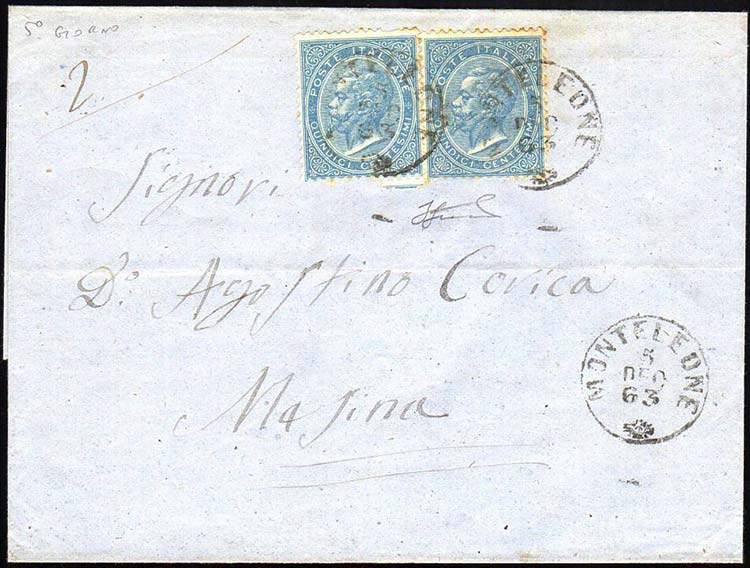 5° GIORNO
2
POSTE ITALIANE
QUINDICI CENTESIMI
POSTE ITALIANE
QUINDICI CENTESIMI
MONTELEONE
Signori
D.º Agostino Corica
Masina
MONTELEONE
5
DEC
63